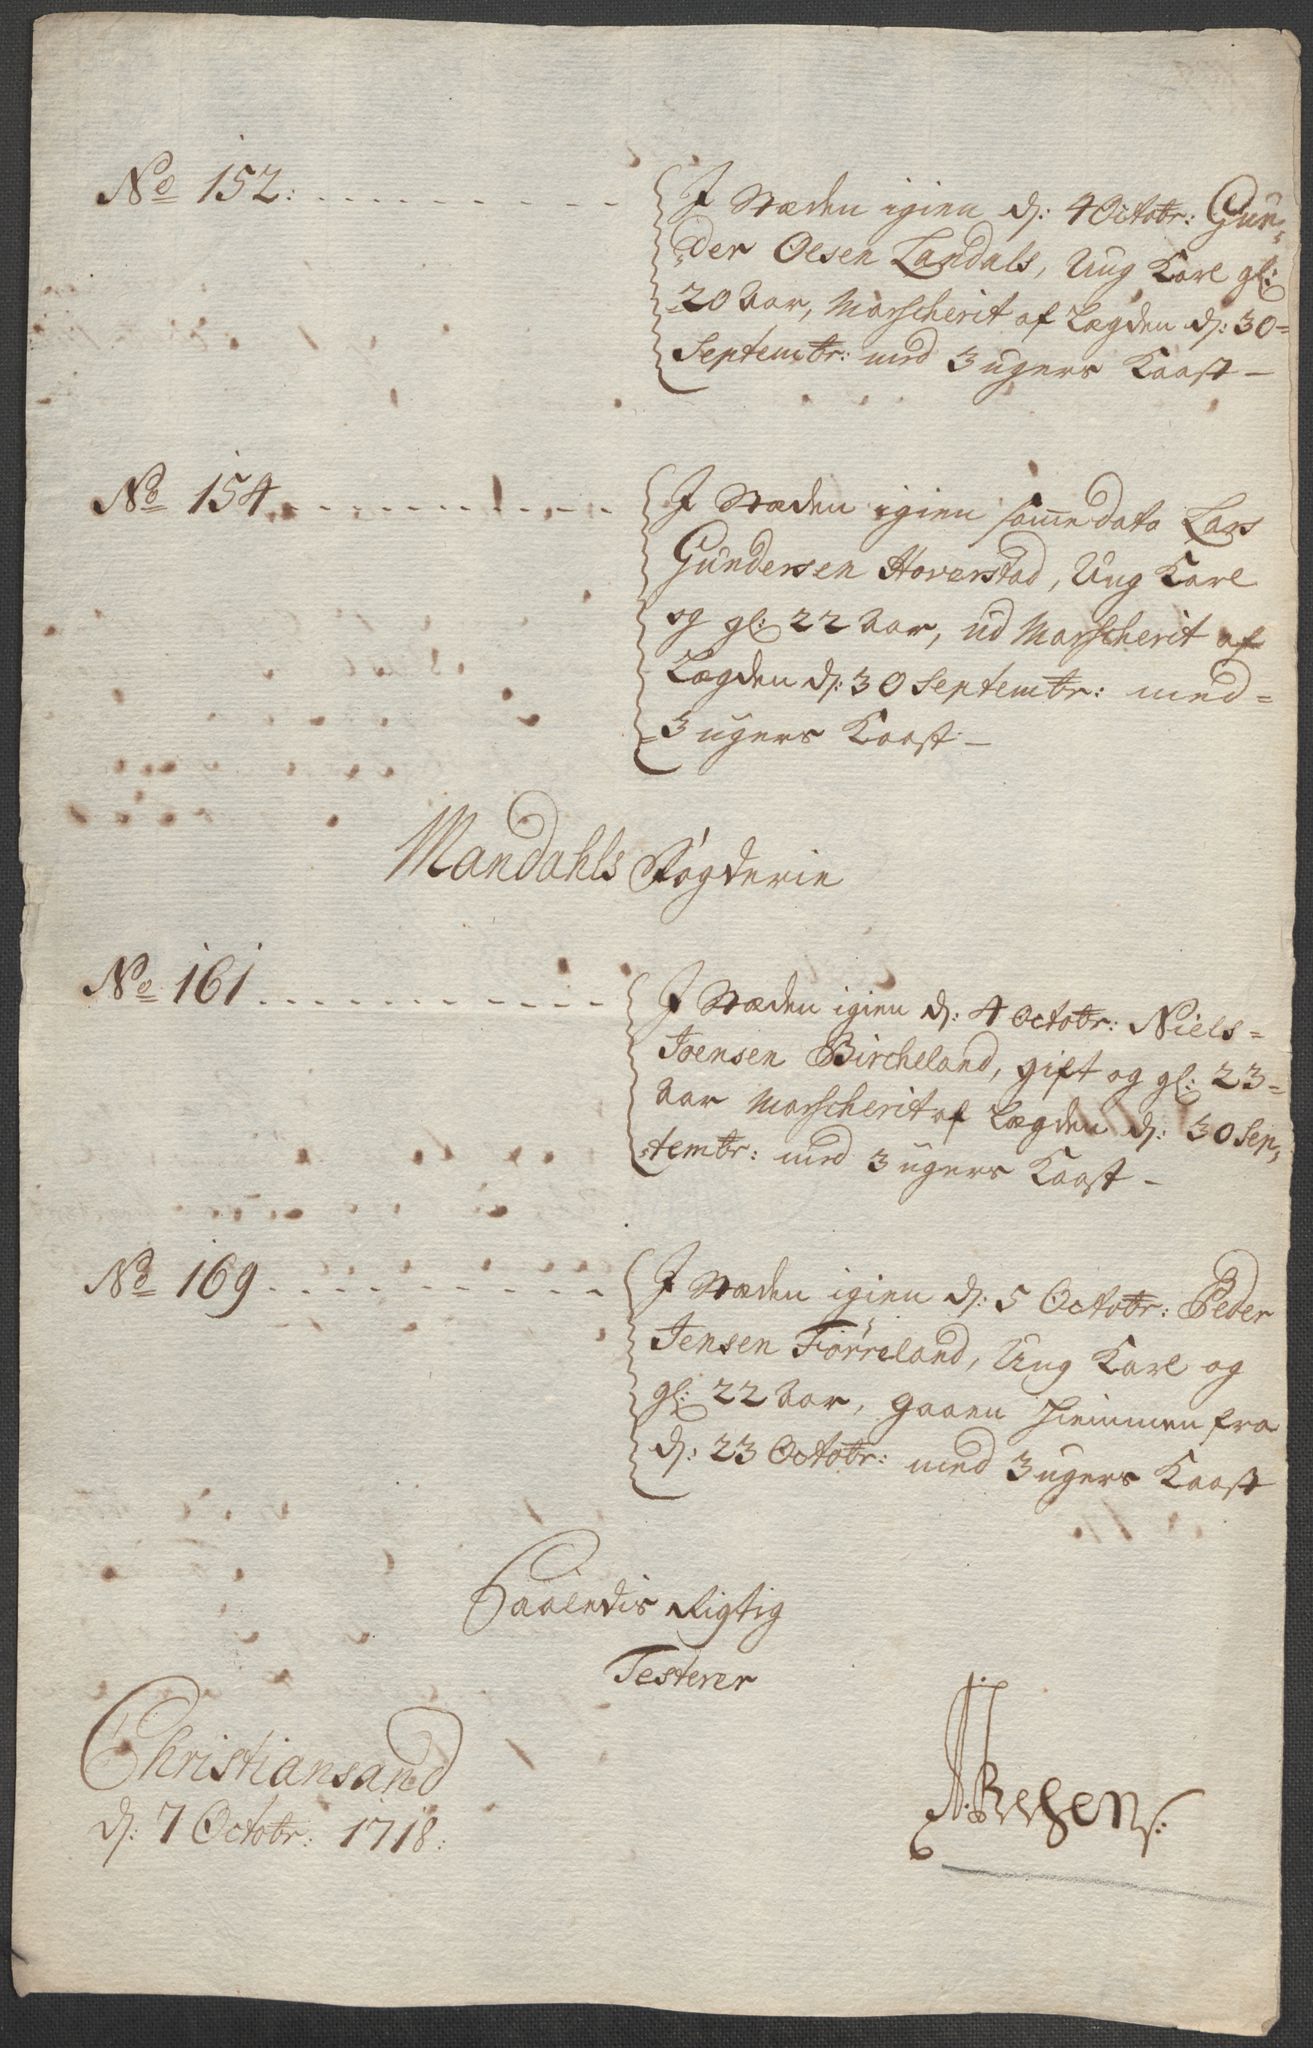 No 152: . . . . . . . . . . . .
I Stæden igien d: 4 Octobr: Gun-
der Olsen Landals, Ung Karl gl:
20 Aar, Marscherit af Lægden d: 30-
Septembr: med 3 ugers Kaast -
No 154 . . . . . . . . . . . .
I Stæden igien samme dato Lars
Gundersen Haverstad, Ung Karl
og gl: 22 Aar, ud Marscherit af
Lægden d: 30 Septembr: med-
3 ugers Kaast -
Mandahls Fogderie
No 161 . . . . . . . . . . . .
I Stæden igien d: 4 Octobr: Niels-
Joensen Bircheland, gift og gl: 23-
Aar Marscherit af Lægden d: 30 Sep-
tembr: med 3 ugers Kaast -
No 169 . . . . . . . . . . . .
I Stæden igien d: 5 Octobr: Peder
Jensen Førreland, Ung Karl og
gl: 22 Aar, gaaen Hiemmen fra
d: 23 Octobr: med 3 ugers Kaast
Saaledis Rigtig
Testerer
Christiansand
d: 7 Octobr: 1718: